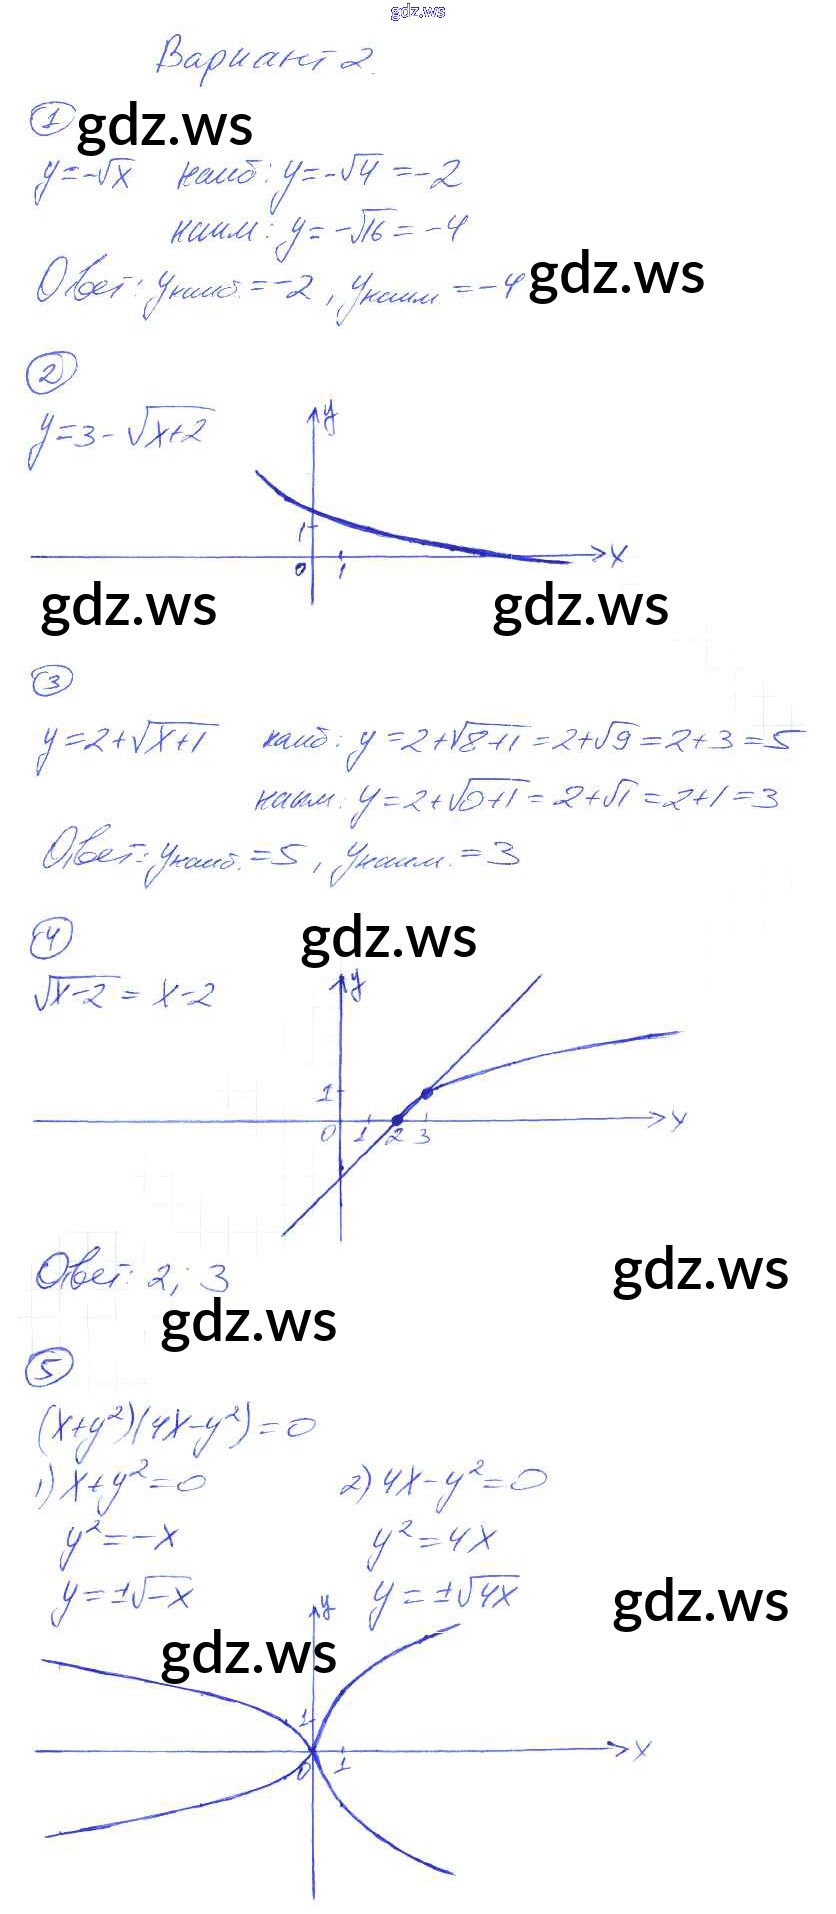 gdz.ws
Вариант 2.
1 gdz.ws
y=-√x наиб: y=-√4=-2
наим: y=-√16=-4
Ответ: yнаиб.=-2, yнаим.=-4 gdz.ws
2
y=3-√x+2
y
1
0 1 x
gdz.ws gdz.ws
3
y=2+√x+1 наиб: y=2+√8+1=2+√9=2+3=5
наим: y=2+√0+1=2+√1=2+1=3
Ответ: yнаиб.=5, yнаим.=3
4 gdz.ws
√x-2=x-2
y
1
0 1 2 3 x
Ответ: 2; 3 gdz.ws
gdz.ws
5
(x+y²)(4x-y²)=0
1) x+y²=0 2) 4x-y²=0
y²=-x y²=4x
y=±√-x y=±√4x gdz.ws
y
gdz.ws
1
0 1 x